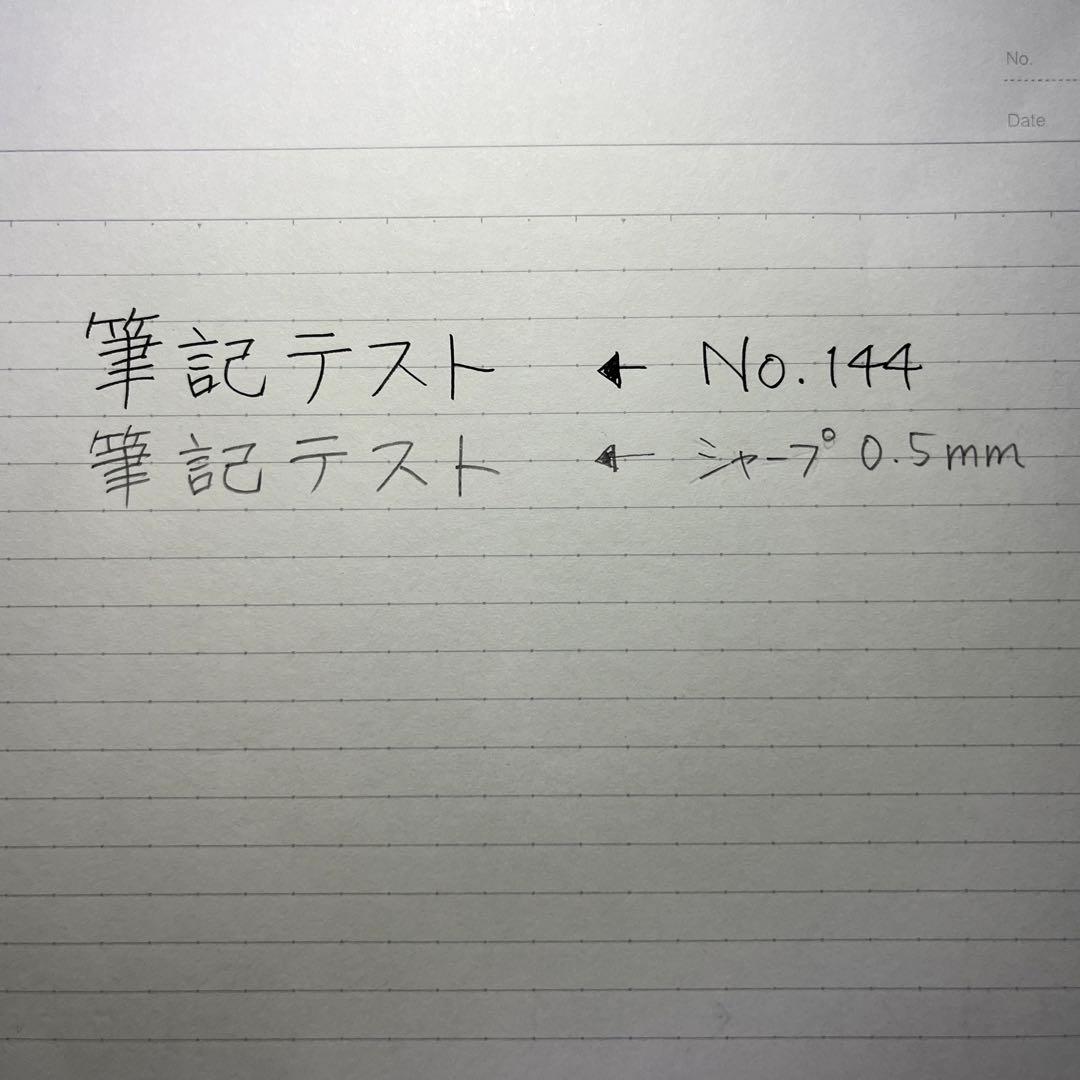 No.
Date
筆記テスト ← No.144
筆記テスト ← シャープ 0.5mm